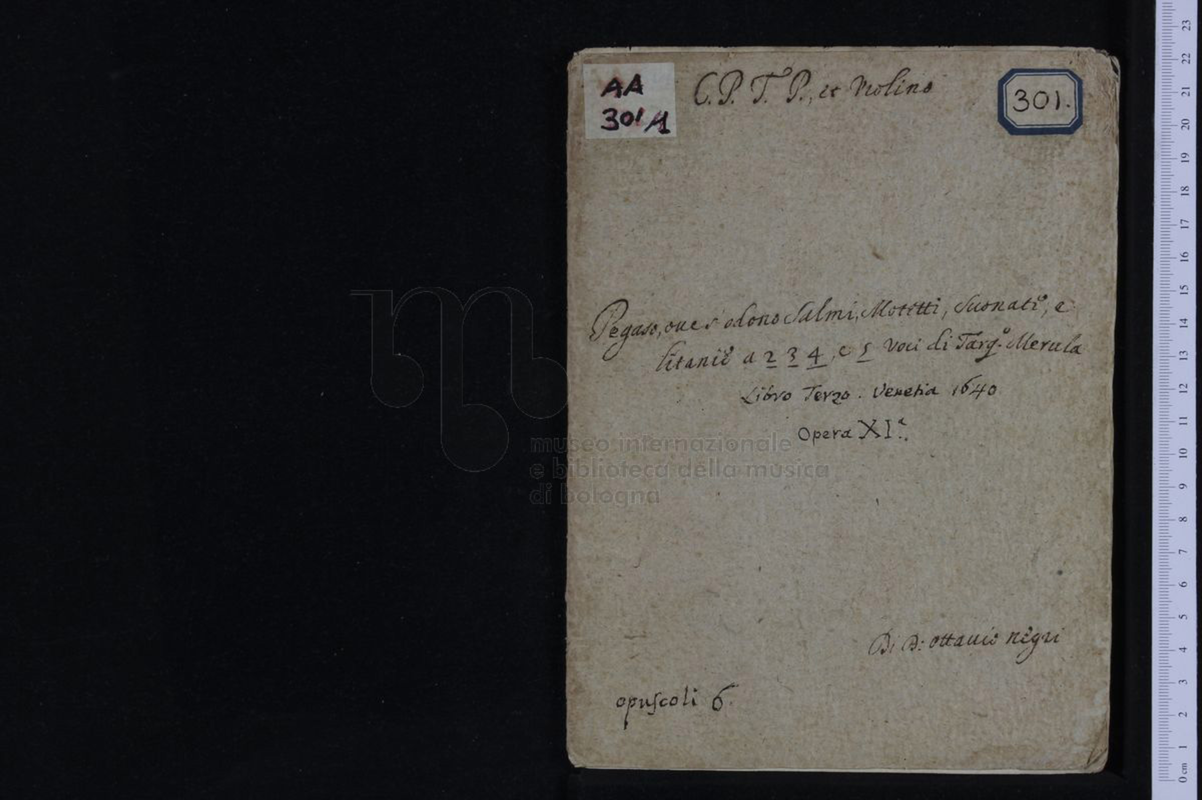 AA
301/1
C. P. T. P., et Violino
301.
Pegaso, oue s'odono Salmi, Motetti, Suonate, e
litanie a 2 3 4, e 5 Voci di Tarq.º Merula
Libro Terzo. Venetia 1640
Opera XI.ª
museo internazionale
e biblioteca della musica
di bologna
Ottauio negri
opuscoli 6.
23
22
21
20
19
18
17
16
15
14
13
12
11
10
9
8
7
6
5
4
3
2
1
0 cm